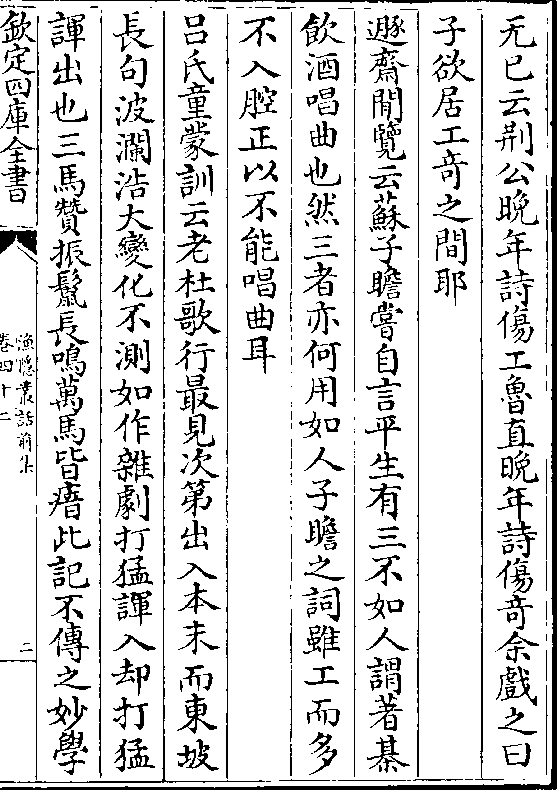 无已云荆公晩年詩傷工魯直晩年詩傷竒余戲之曰
子欲居工竒之間耶
遯齋閒覽云蘇子瞻嘗自言平生有三不如人謂著棊
飲酒唱曲也然三者亦何用如人子瞻之詞雖工而多
不入腔正以不能唱曲耳
吕氏童蒙訓云老杜歌行最見次第出入本末而東坡
長句波瀾浩大變化不測如作雜劇打猛諢入却打猛
諢出也三馬贊振鬛長鳴萬馬皆瘖此記不傳之妙學
欽定四庫全書
漁隱叢話前集
卷四十二
二